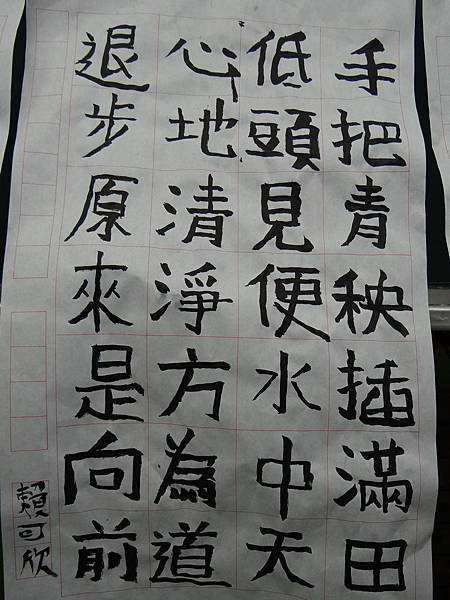 手把青秧插滿田
低頭見便水中天
心地清淨方為道
退步原來是向前
賴可欣